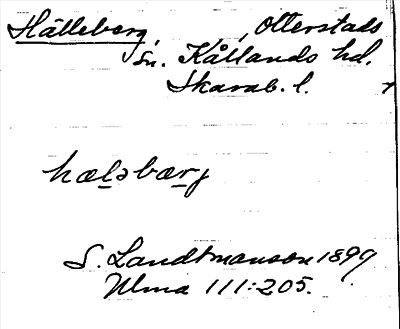 Hälleberg, Otterstads
sn. Kållands hd.
Skarab. l.
hæləbærj
S. Landtmanson 1899
Ulma 111:205.